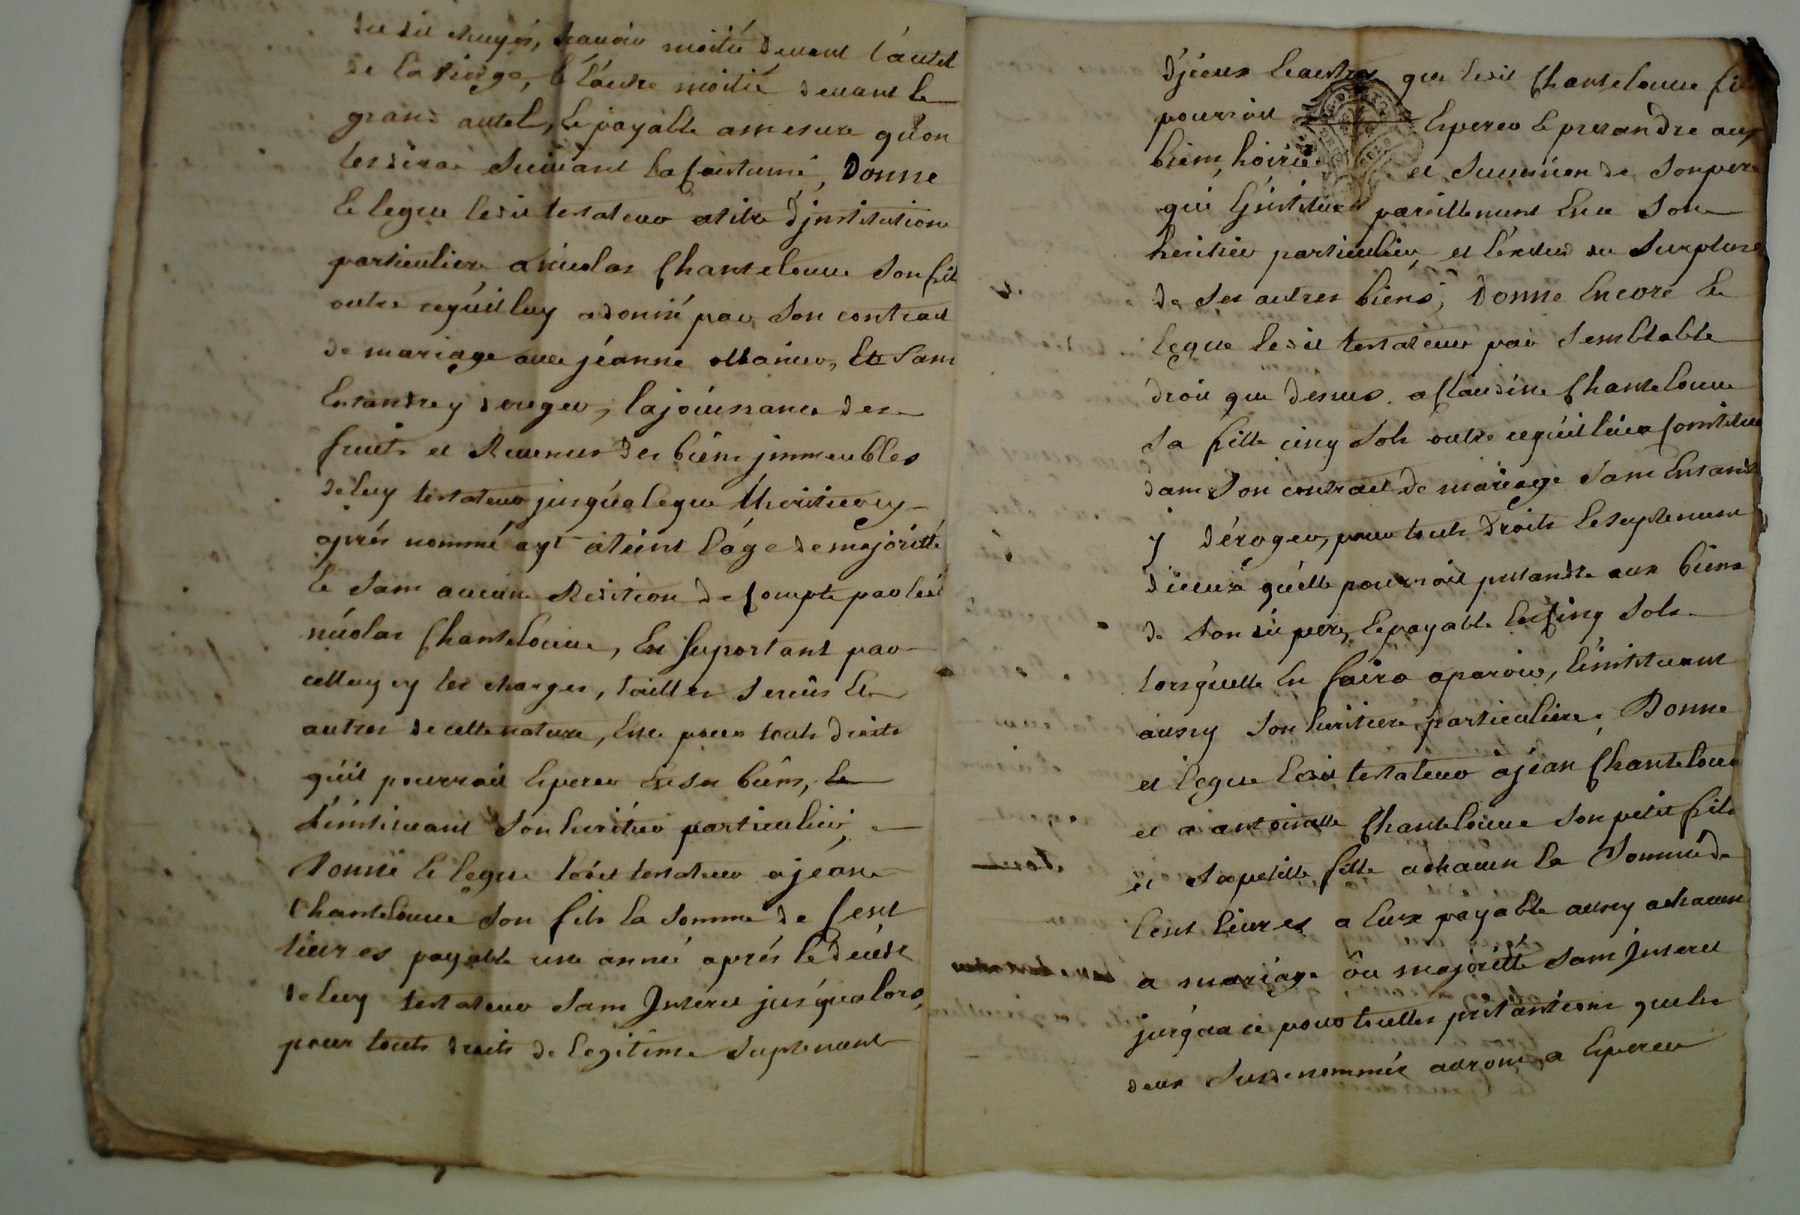 dudit chuyer, scavoir moitié devant l'autel
de la vierge, & l'autre moitié devant le
grand autel, & payable amesure qu'on
les dira suivant la coutume, Donne
& legue ledit testateur atitre d'institution
particuliere a nicolas Chantelouve son fils
outre cequ'il luy a donné par son contrat
de mariage avec jéanne & sans
Entandre y deroger, la joüissance des
fruits et Revenus des biens jmmeubles
de luy testateur jusqu'aleque lheritier cy
aprés nommé ayt ateint l'age demajorité
& sans aucune Redition de Compte par ledit
nicolas Chantelouve, En suportant par
celluy cy les charges, tailles servis &
autres de cette nature, & ce pour touts droits
qu'il pourroit Esperer en ses biens, Le
L'instituant son heritier particulier,
Donne & legue ledit testateur a jéan
Chantelouve son fils la somme de Cent
livres payable une année aprés le décés
de luy testateur sans Jnteret jusqu'alors,
pour touts droits de legitime suplement
d'jceux & autres que ledit Chantelouve fils
pourroit Esperer & pretandre aux
biens, hoirie et succession de son pere
qui L'jnstitue pareillement En ce son
heritier particulier, et L'exclus du surplus
de ses autres biens; Donne Encore &
legue ledit testateur par semblable
droit que dessus a Claudine Chantelouve
sa fille cinq sols outre cequ'il luy a Constitué
dans son contract de mariage sans Entandre
y déroger, pour touts droits & suplement
d'iceux qu'elle pourroit pretandre aux biens
de son dit pere, & payable les Cinq sols
lorsqu'elle En faira aparoir, L'instituant
aussy son heritiere particuliere, Donne
et legue ledit testateur a jéan Chantelouve
et a antoinette Chantelouve son petit fils
et sa petite fille a chacun la somme de
Cent livres a Eux payable aussy a chacun
a mariage ou majorité sans Jnteret
jusqu'a ce pour touttes pretantions que les
deux susdenommés auront a Esperer